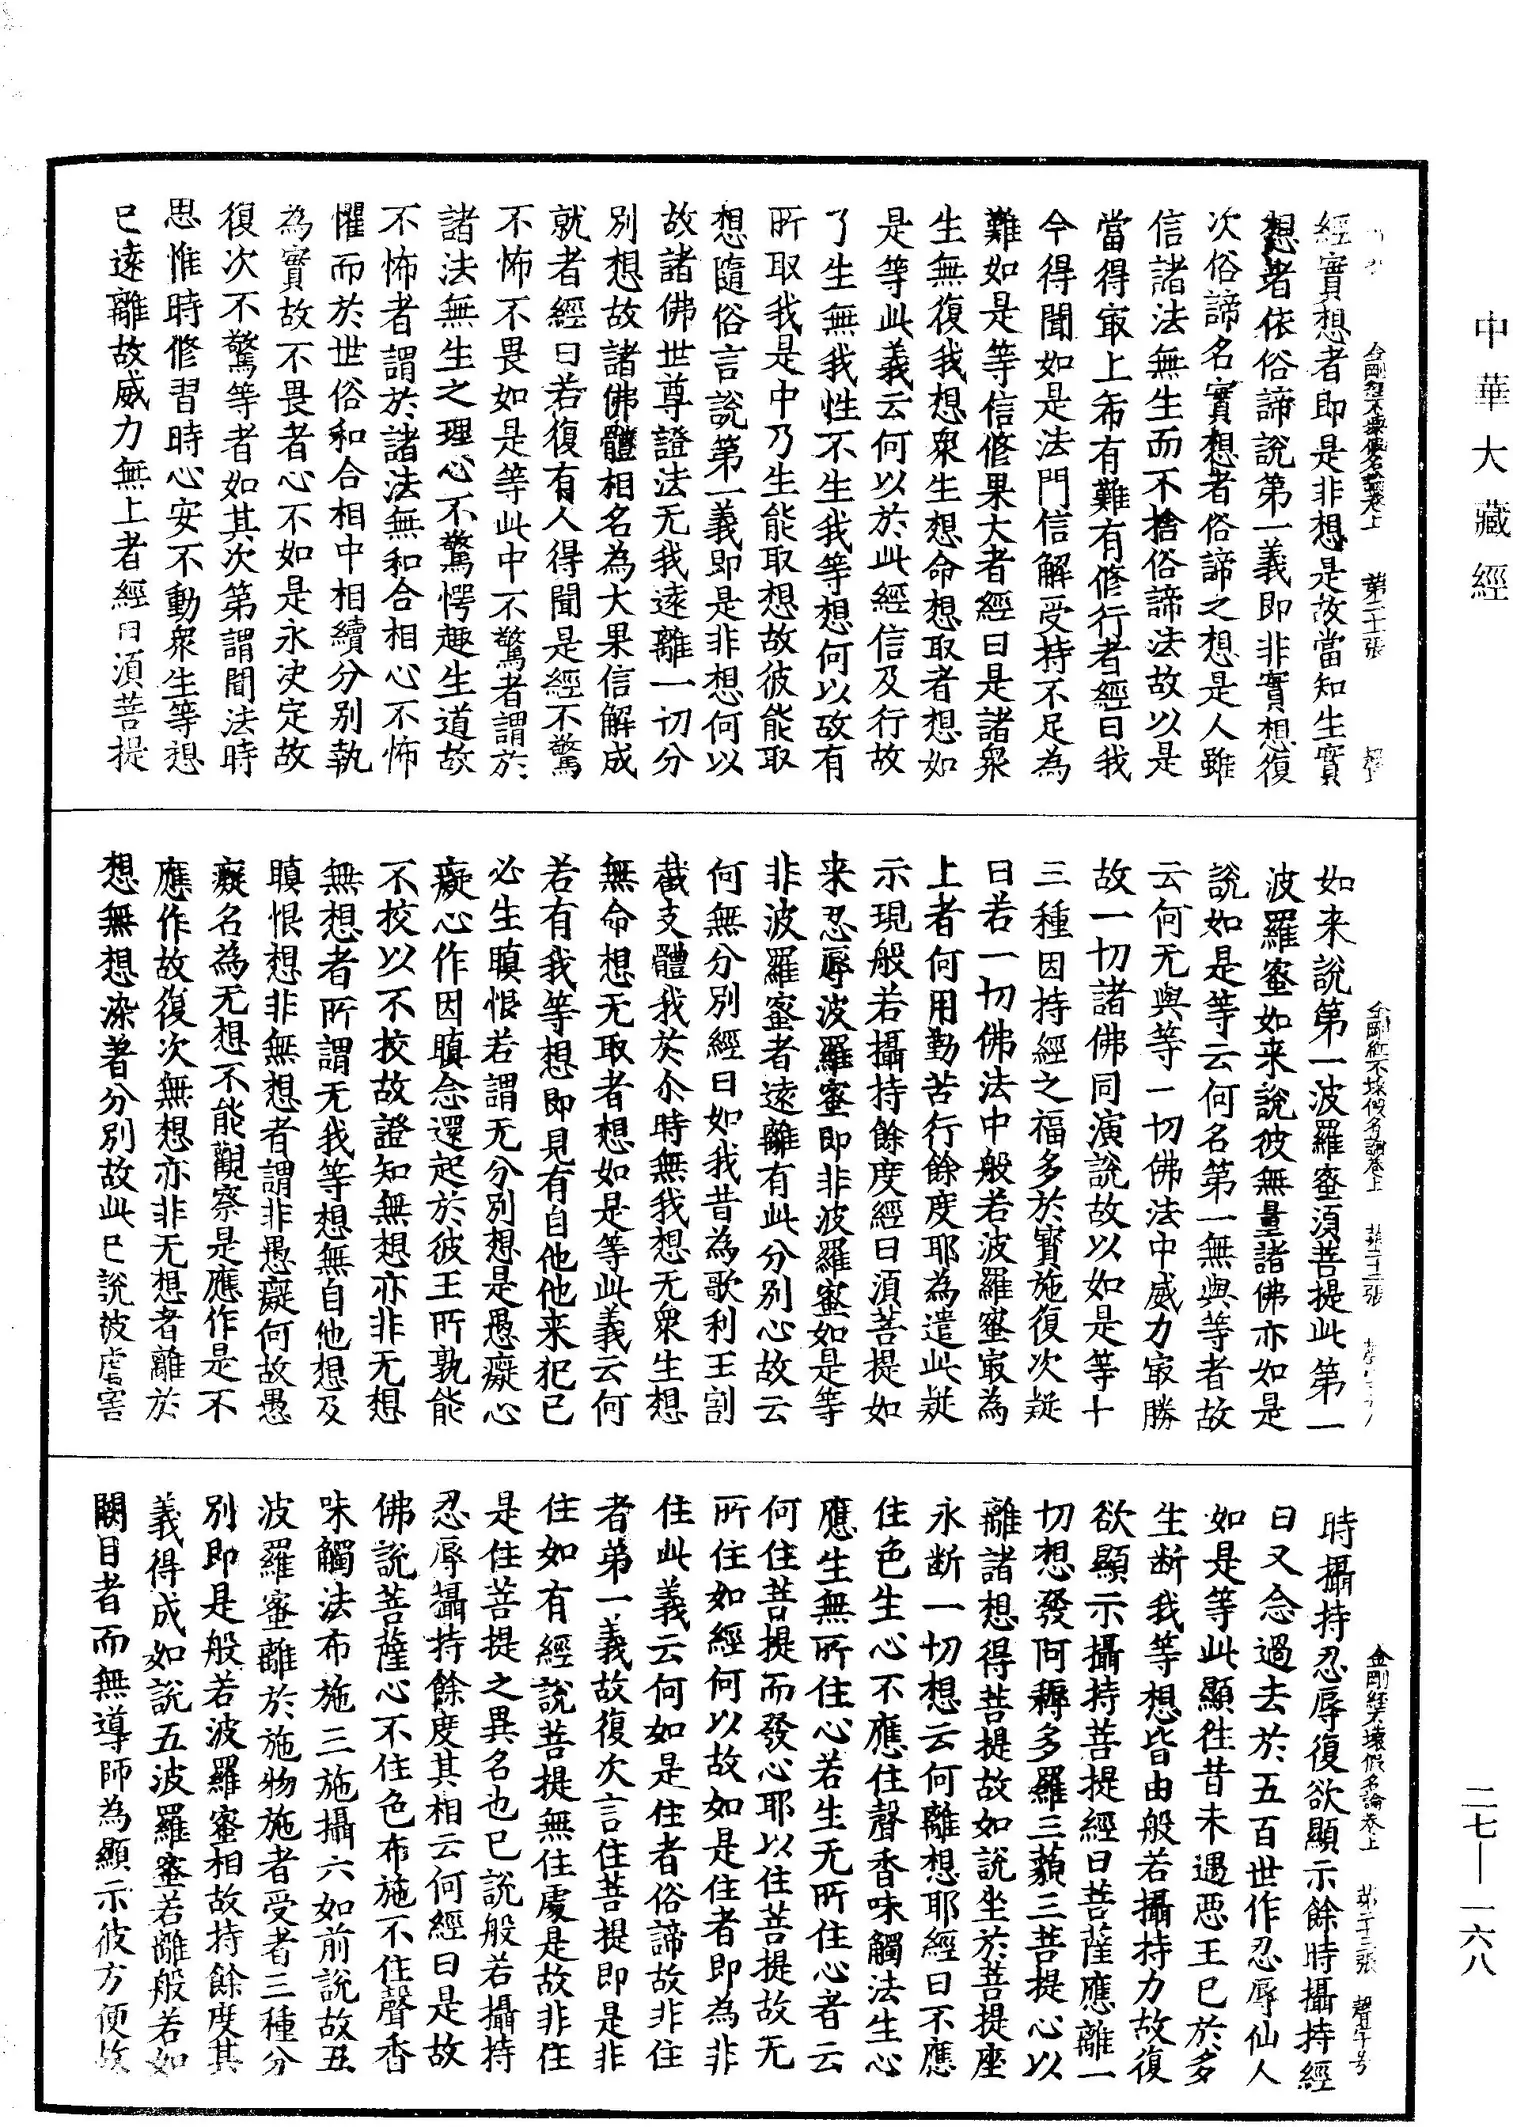 中華大藏經
經實想者即是非想是故當知生實
想者依俗諦說第一義即非實想復
次俗諦名實想者俗諦之想是人雖
信諸法無生而不捨俗諦法故以是
當得㝡上希有難有修行者經曰我
今得聞如是法門信解受持不足為
難如是等信修果大者經曰是諸衆
生無復我想衆生想命想取者想如
是等此義云何以於此經信及行故
了生無我性不生我等想何以故有
所取我是中乃生能取想故彼能取
想隨俗言說第一義即是非想何以
故諸佛世尊證法无我遠離一切分
別想故諸佛體相名為大果信解成
就者經曰若復有人得聞是經不驚
不怖不畏如是等此中不驚者謂於
諸法無生之理心不驚愕趣生道故
不怖者謂於諸法無和合相心不怖
懼而於世俗和合相中相續分別執
為實故不畏者心不如是永決定故
復次不驚等者如其次第謂聞法時
思惟時修習時心安不動衆生等想
已遠離故威力無上者經曰須菩提
金剛經不壞假名論卷上
如来說第一波羅蜜須菩提此第一
波羅蜜如来說彼無量諸佛亦如是
說如是等云何名第一無與等者故
云何无與等一切佛法中威力㝡勝
故一切諸佛同演說故以如是等十
三種因持經之福多於寳施復次疑
曰若一切佛法中般若波羅蜜㝡為
上者何用勤苦行餘度耶為遣此疑
示現般若攝持餘度經曰須菩提如
来忍辱波羅蜜即非波羅蜜如是等
非波羅蜜者遠離有此分別心故云
何無分別經曰如我昔為歌利王割
截支體我於尒時無我想无衆生想
無命想无取者想如是等此義云何
若有我等想即見有自他他来犯已
必生瞋恨若謂无分別想是愚癡心
癡心作因瞋念還起於彼王所孰能
不校以不校故證知無想亦非无想
無想者所謂无我等想無自他想及
瞋恨想非無想者謂非愚癡何故愚
癡名為无想不能觀察是應作是不
應作故復次無想亦非无想者離於
想無想染著分別故此已說被虐害
金剛經不壞假名論卷上 第二十三張 聲字号
時攝持忍辱復欲顯示餘時攝持經
曰又念過去於五百世作忍辱仙人
如是等此顯往昔未遇惡王已於多
生断我等想皆由般若攝持力故復
欲顯示攝持菩提經曰菩薩應離一
切想發阿耨多羅三藐三菩提心以
離諸想得菩提故如說坐於菩提座
永断一切想云何離想耶經曰不應
住色生心不應住聲香味觸法生心
應生無所住心若生无所住心者云
何住菩提而發心耶以住菩提故无
所住如經何以故如是住者即為非
住此義云何如是住者俗諦故非住
者第一義故復次言住菩提即是非
住如有經說菩提無住處是故非住
是住菩提之異名也已說般若攝持
忍辱攝持餘度其相云何經曰是故
佛說菩薩心不住色布施不住聲香
味觸法布施三施攝六如前說故丑
波羅蜜離於施物施者受者三種分
別即是般若波羅蜜相故持餘度其
義得成如說五波羅蜜若離般若如
闕目者而無導師為顯示彼方便故
二七—一六八